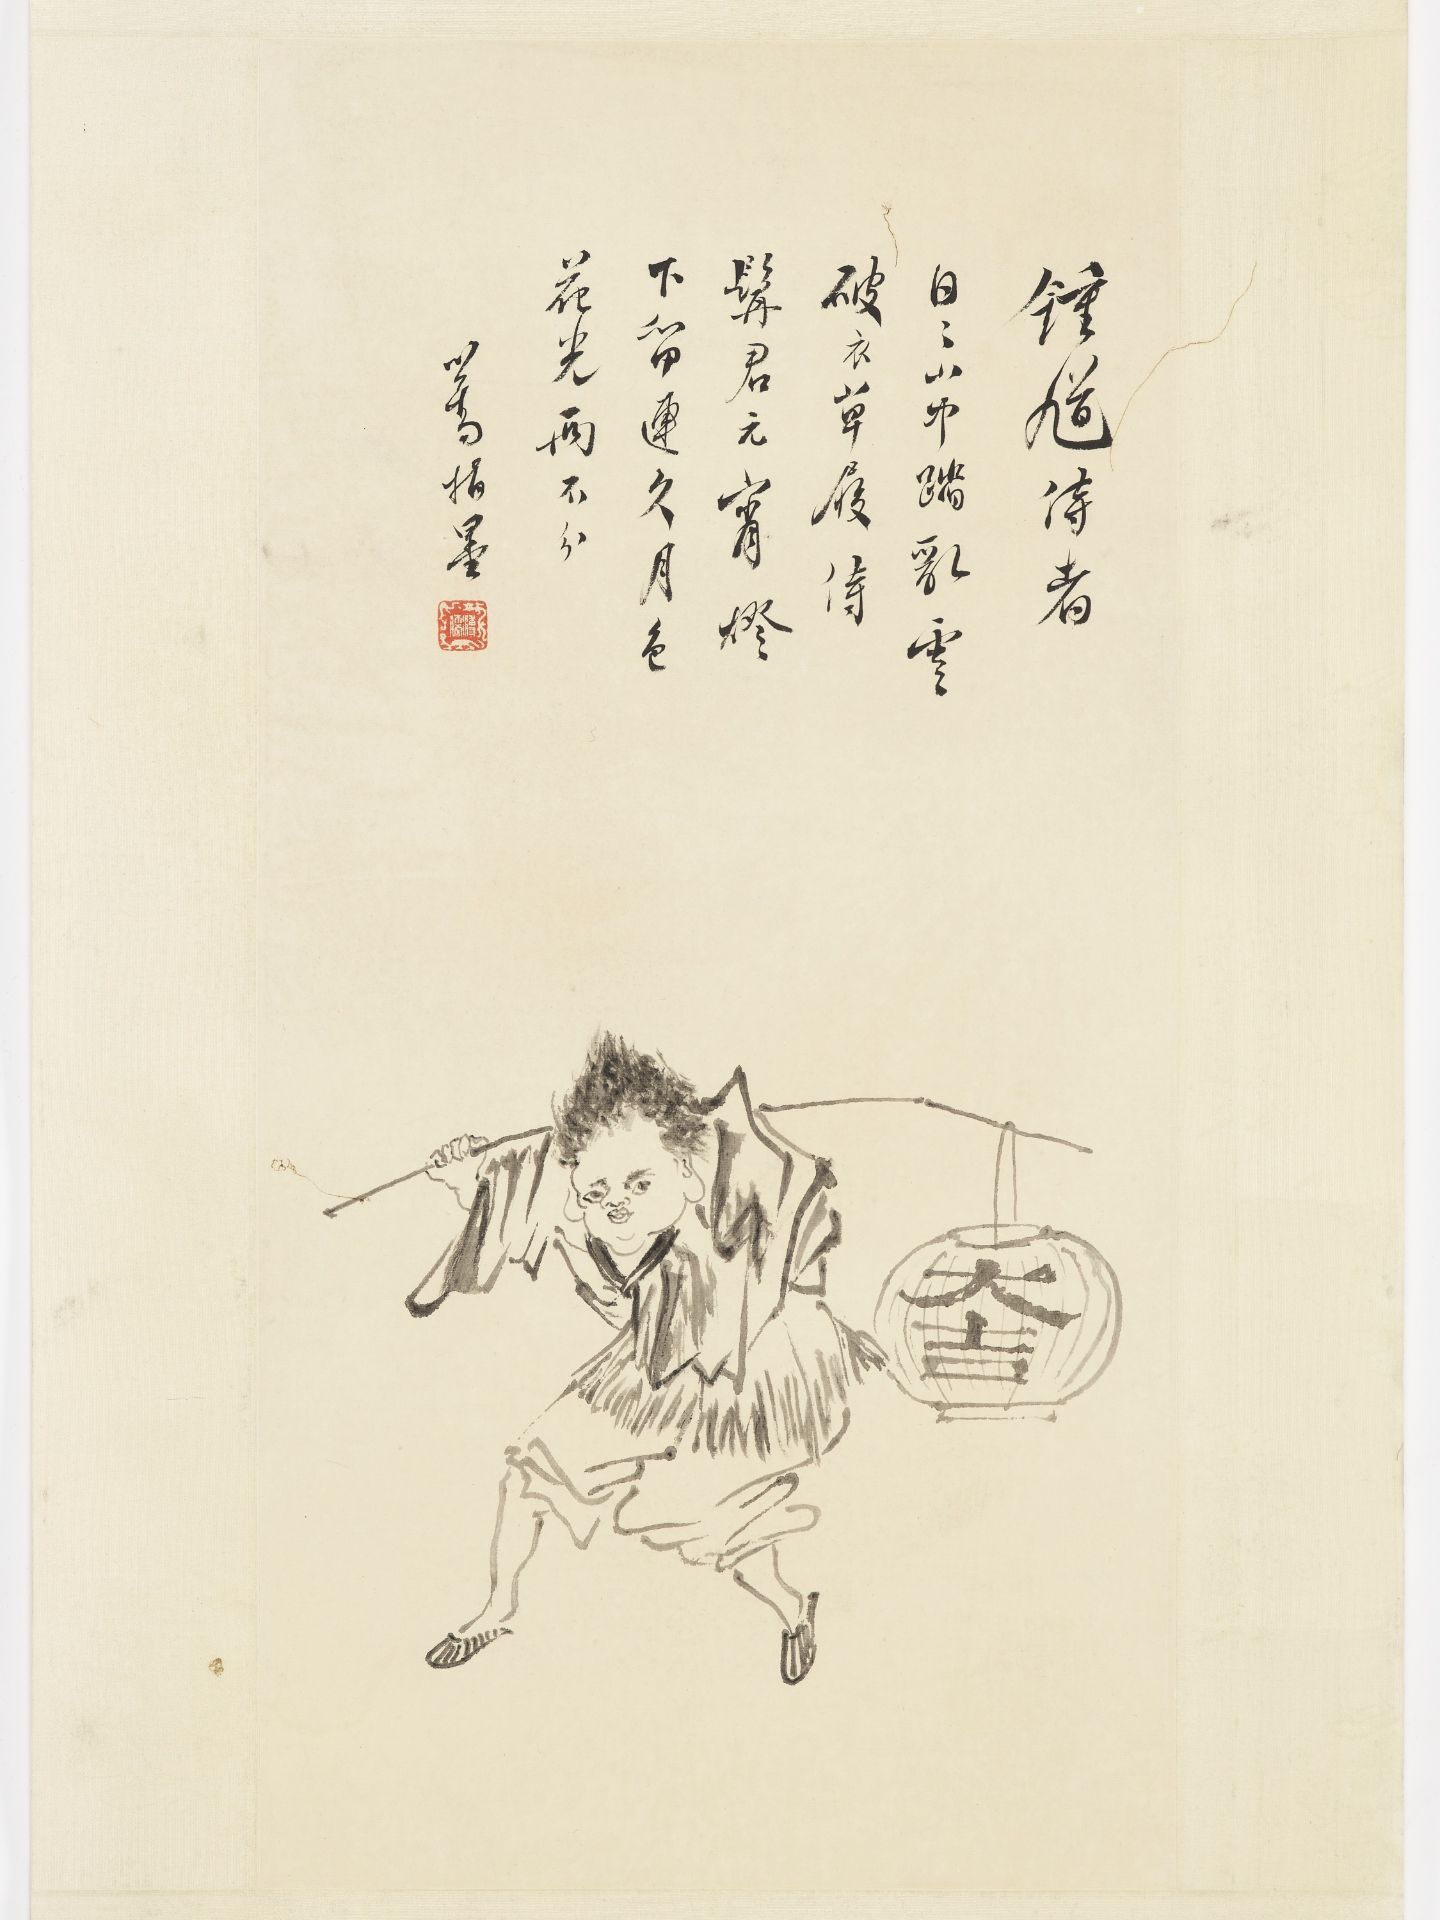 鍾馗侍者
日日山中踏亂雲
破衣草屐侍
髯君元宵燈
下留連久月色
花光兩不分
心畬指墨
大吉